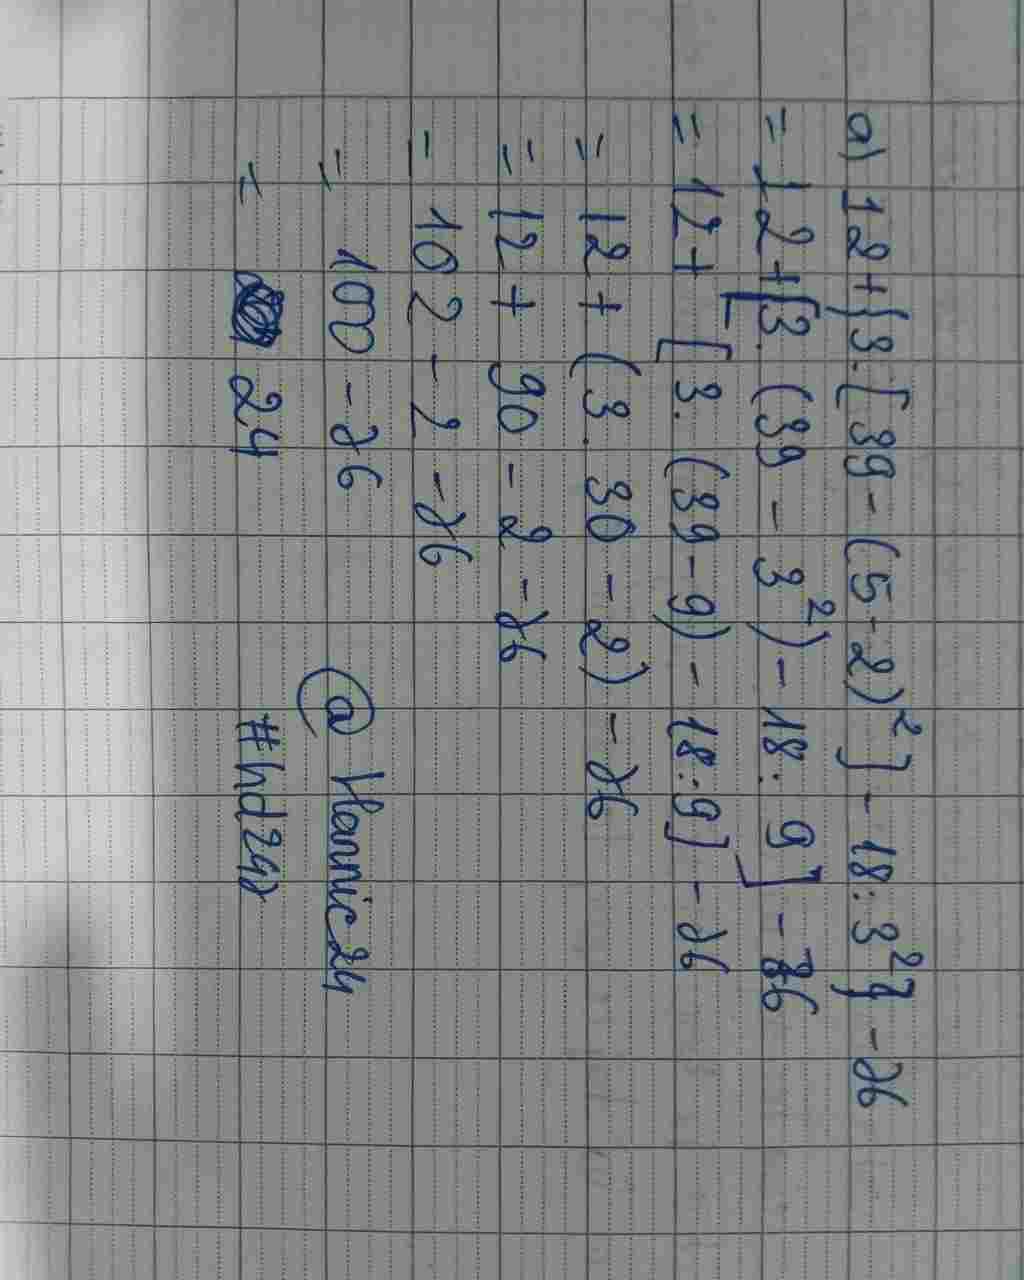 a) 12+{3.[39-(5-2)²]-18:3²}-76
= 12+[3.(39-3²)-18:9]-76
= 12+[3.(39-9)-18:9]-76
= 12+(3.30-2)-76
= 12+90-2-76
= 102-2-76
= 100-76 @Hannic24
= 24 #hd247